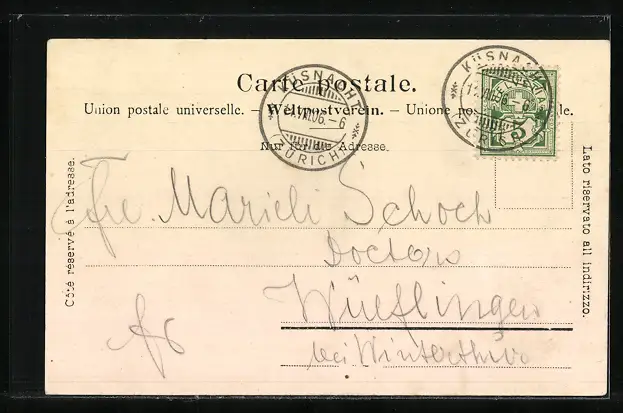 Carte postale.
Union postale universelle. – Weltpostverein. – Unione
Nur für die Adresse.
KÜSNACHT
VII.06.–6
(ZÜRICH)
KÜSNACHT
5
Côté réservé à l'adresse.
Lato riservato all indirizzo.
Frl. Marieli Schoch
Doctors
Wülflingen
bei Winterthur